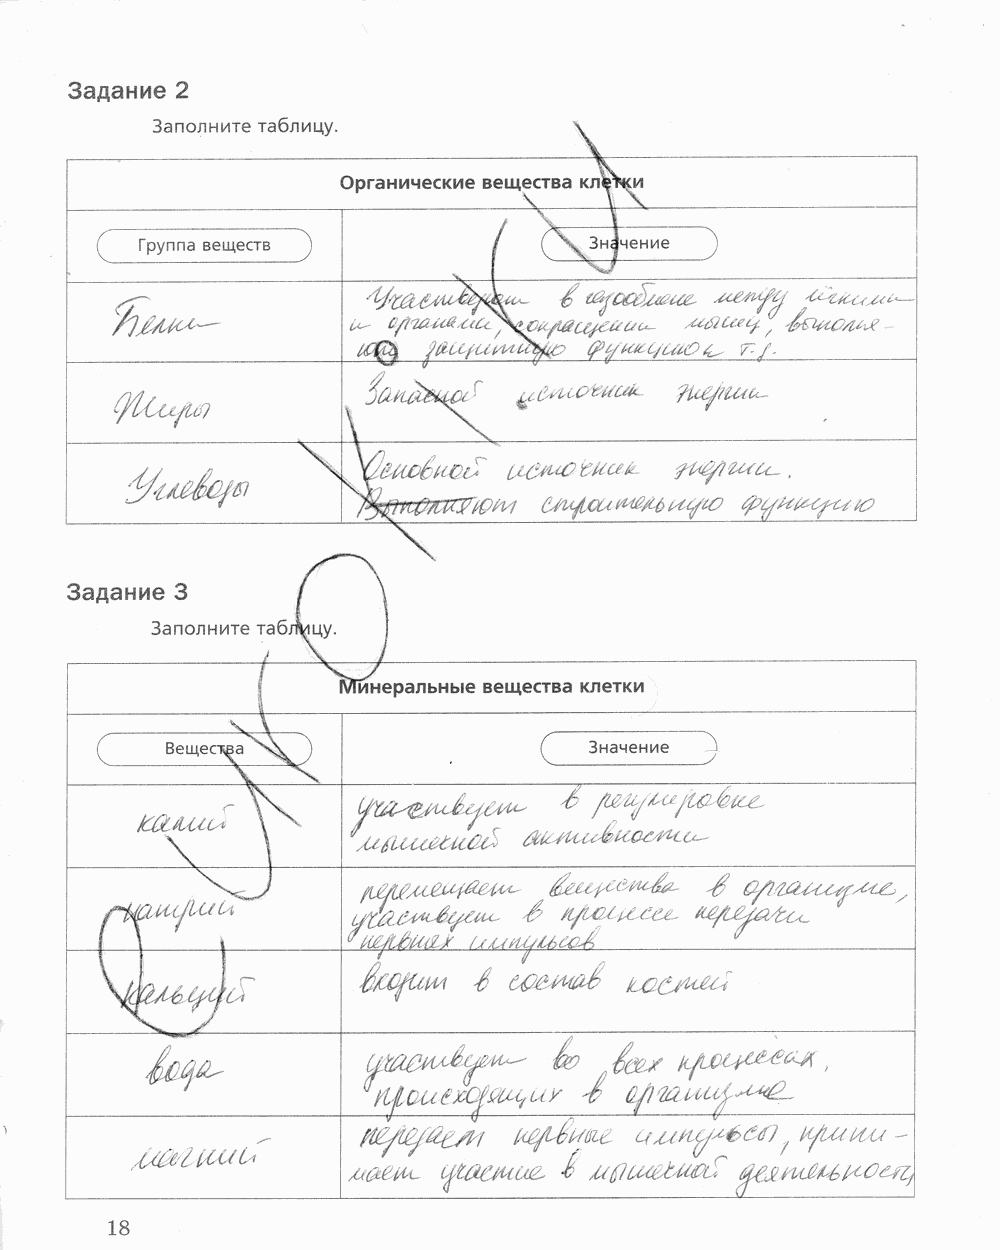 Задание 2
Заполните таблицу.
Органические вещества клетки
Группа веществ
Значение
Белки
Участвуют в газообмене между лёгкими
и органами, сокращении мышц, выполня-
ют защитную функцию и т.д.
Жиры
Запасной источник энергии
Углеводы
Основной источник энергии.
Выполняют строительную функцию
Задание 3
Заполните таблицу.
Минеральные вещества клетки
Вещества
Значение
калий
участвует в регулировке
мышечной активности
натрий
перемещает вещества в организме,
участвует в процессе передачи
нервных импульсов
кальций
входит в состав костей
вода
участвует во всех процессах,
происходящих в организме
магний
передаёт нервные импульсы, прини-
мает участие в мышечной деятельности
18